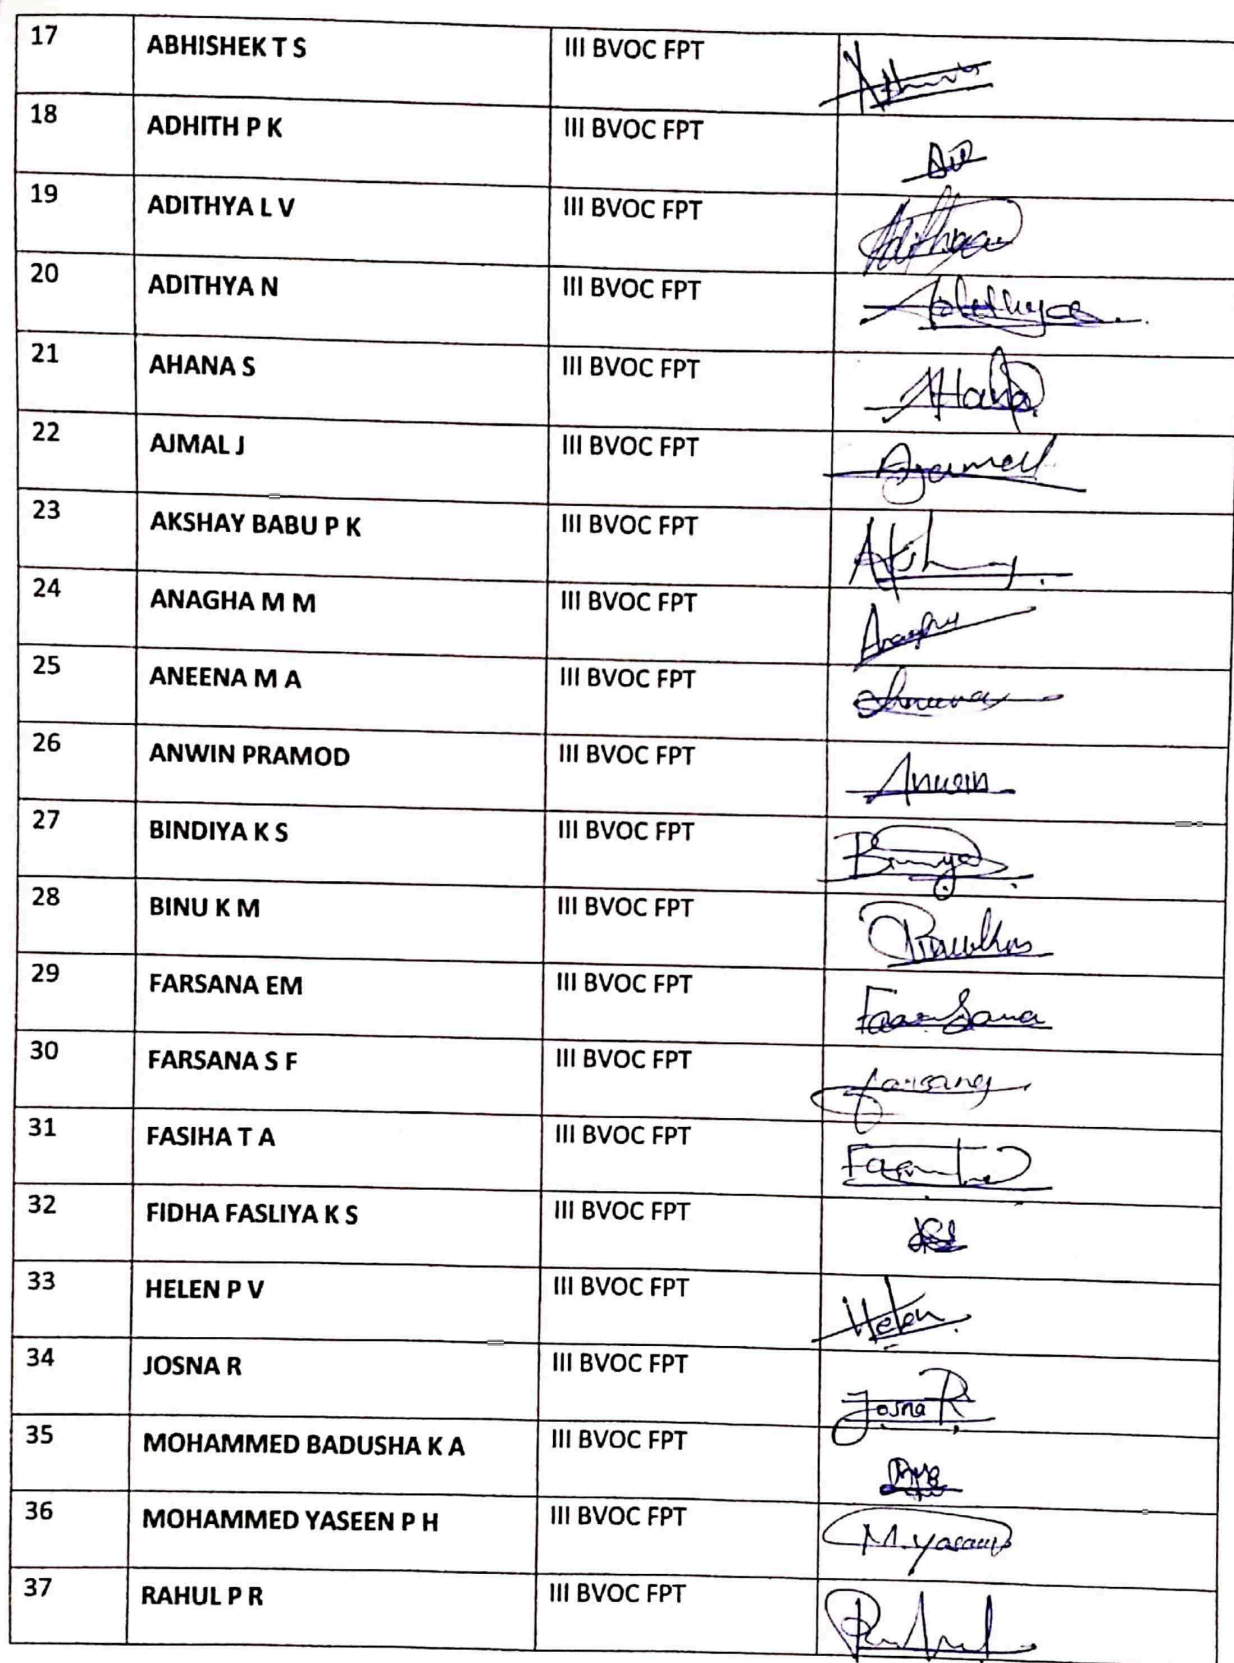 17 ABHISHEK T S III BVOC FPT
18 ADHITH P K III BVOC FPT
19 ADITHYA L V III BVOC FPT Adithya
20 ADITHYA N III BVOC FPT Adithya
21 AHANA S III BVOC FPT AHana
22 AJMAL J III BVOC FPT
23 AKSHAY BABU P K III BVOC FPT
24 ANAGHA M M III BVOC FPT
25 ANEENA M A III BVOC FPT
26 ANWIN PRAMOD III BVOC FPT Anwin
27 BINDIYA K S III BVOC FPT
28 BINU K M III BVOC FPT
29 FARSANA EM III BVOC FPT
30 FARSANA S F III BVOC FPT farsana
31 FASIHA T A III BVOC FPT
32 FIDHA FASLIYA K S III BVOC FPT
33 HELEN P V III BVOC FPT Helen
34 JOSNA R III BVOC FPT Josna R
35 MOHAMMED BADUSHA K A III BVOC FPT
36 MOHAMMED YASEEN P H III BVOC FPT
37 RAHUL P R III BVOC FPT